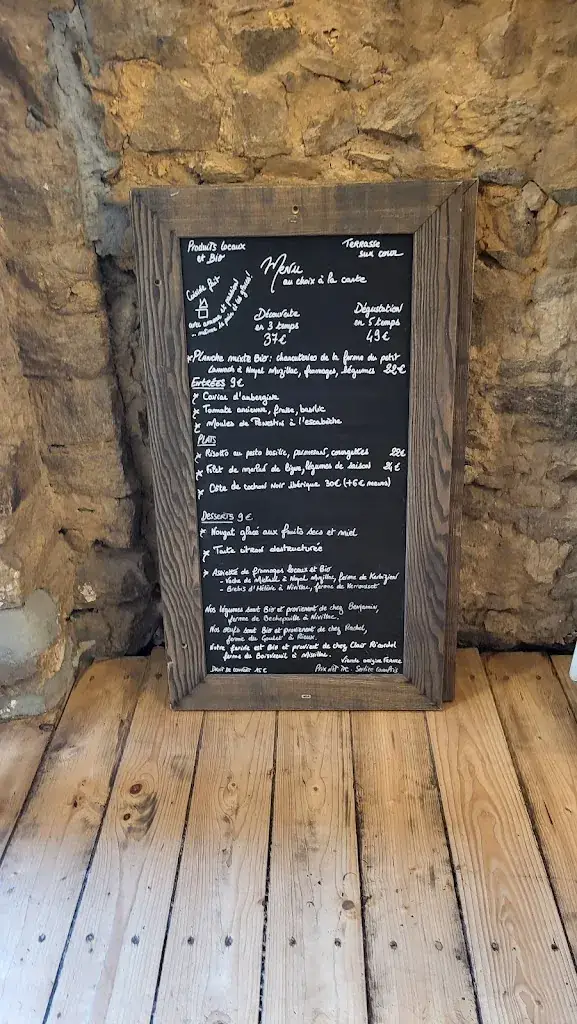 Produits locaux
et Bio
Terrasse
sur cour
Menu
au choix à la carte
Cuisine fait
avec amour et passion!
... même le pain et les glaces!
Découverte
en 3 temps
37€
Dégustation
en 5 temps
49€
Planche mixte Bio: charcuteries de la ferme du petit
à Noyal Muzillac, fromages, légumes 22€
Entrées 9€
Caviar d'aubergine
Tomate ancienne, fraise, basilic
Moules de Penestin à l'escabèche
Plats
Risotto au pesto basilic, parmesan, courgettes 22€
Filet de merlu de ligne, légumes de saison 24€
Côte de cochon Noir Ibérique 30€ (+6€ menu)
Desserts 9€
Nougat glacé aux fruits secs et miel
Tarte citron destructurée
Assiette de fromages locaux et Bio
- Vache de à Noyal Muzillac, ferme de
- Brebis d'Hélène à Nivillac, ferme de
Nos légumes sont Bio et proviennent de chez Benjamin,
ferme de à Nivillac.
Nos œufs sont Bio et proviennent de chez Rachel,
ferme du à Rieux.
Notre farine est Bio et provient de chez
ferme du à
Viande origine France
Droit de couvert 15€
Prix net TTC - Service compris